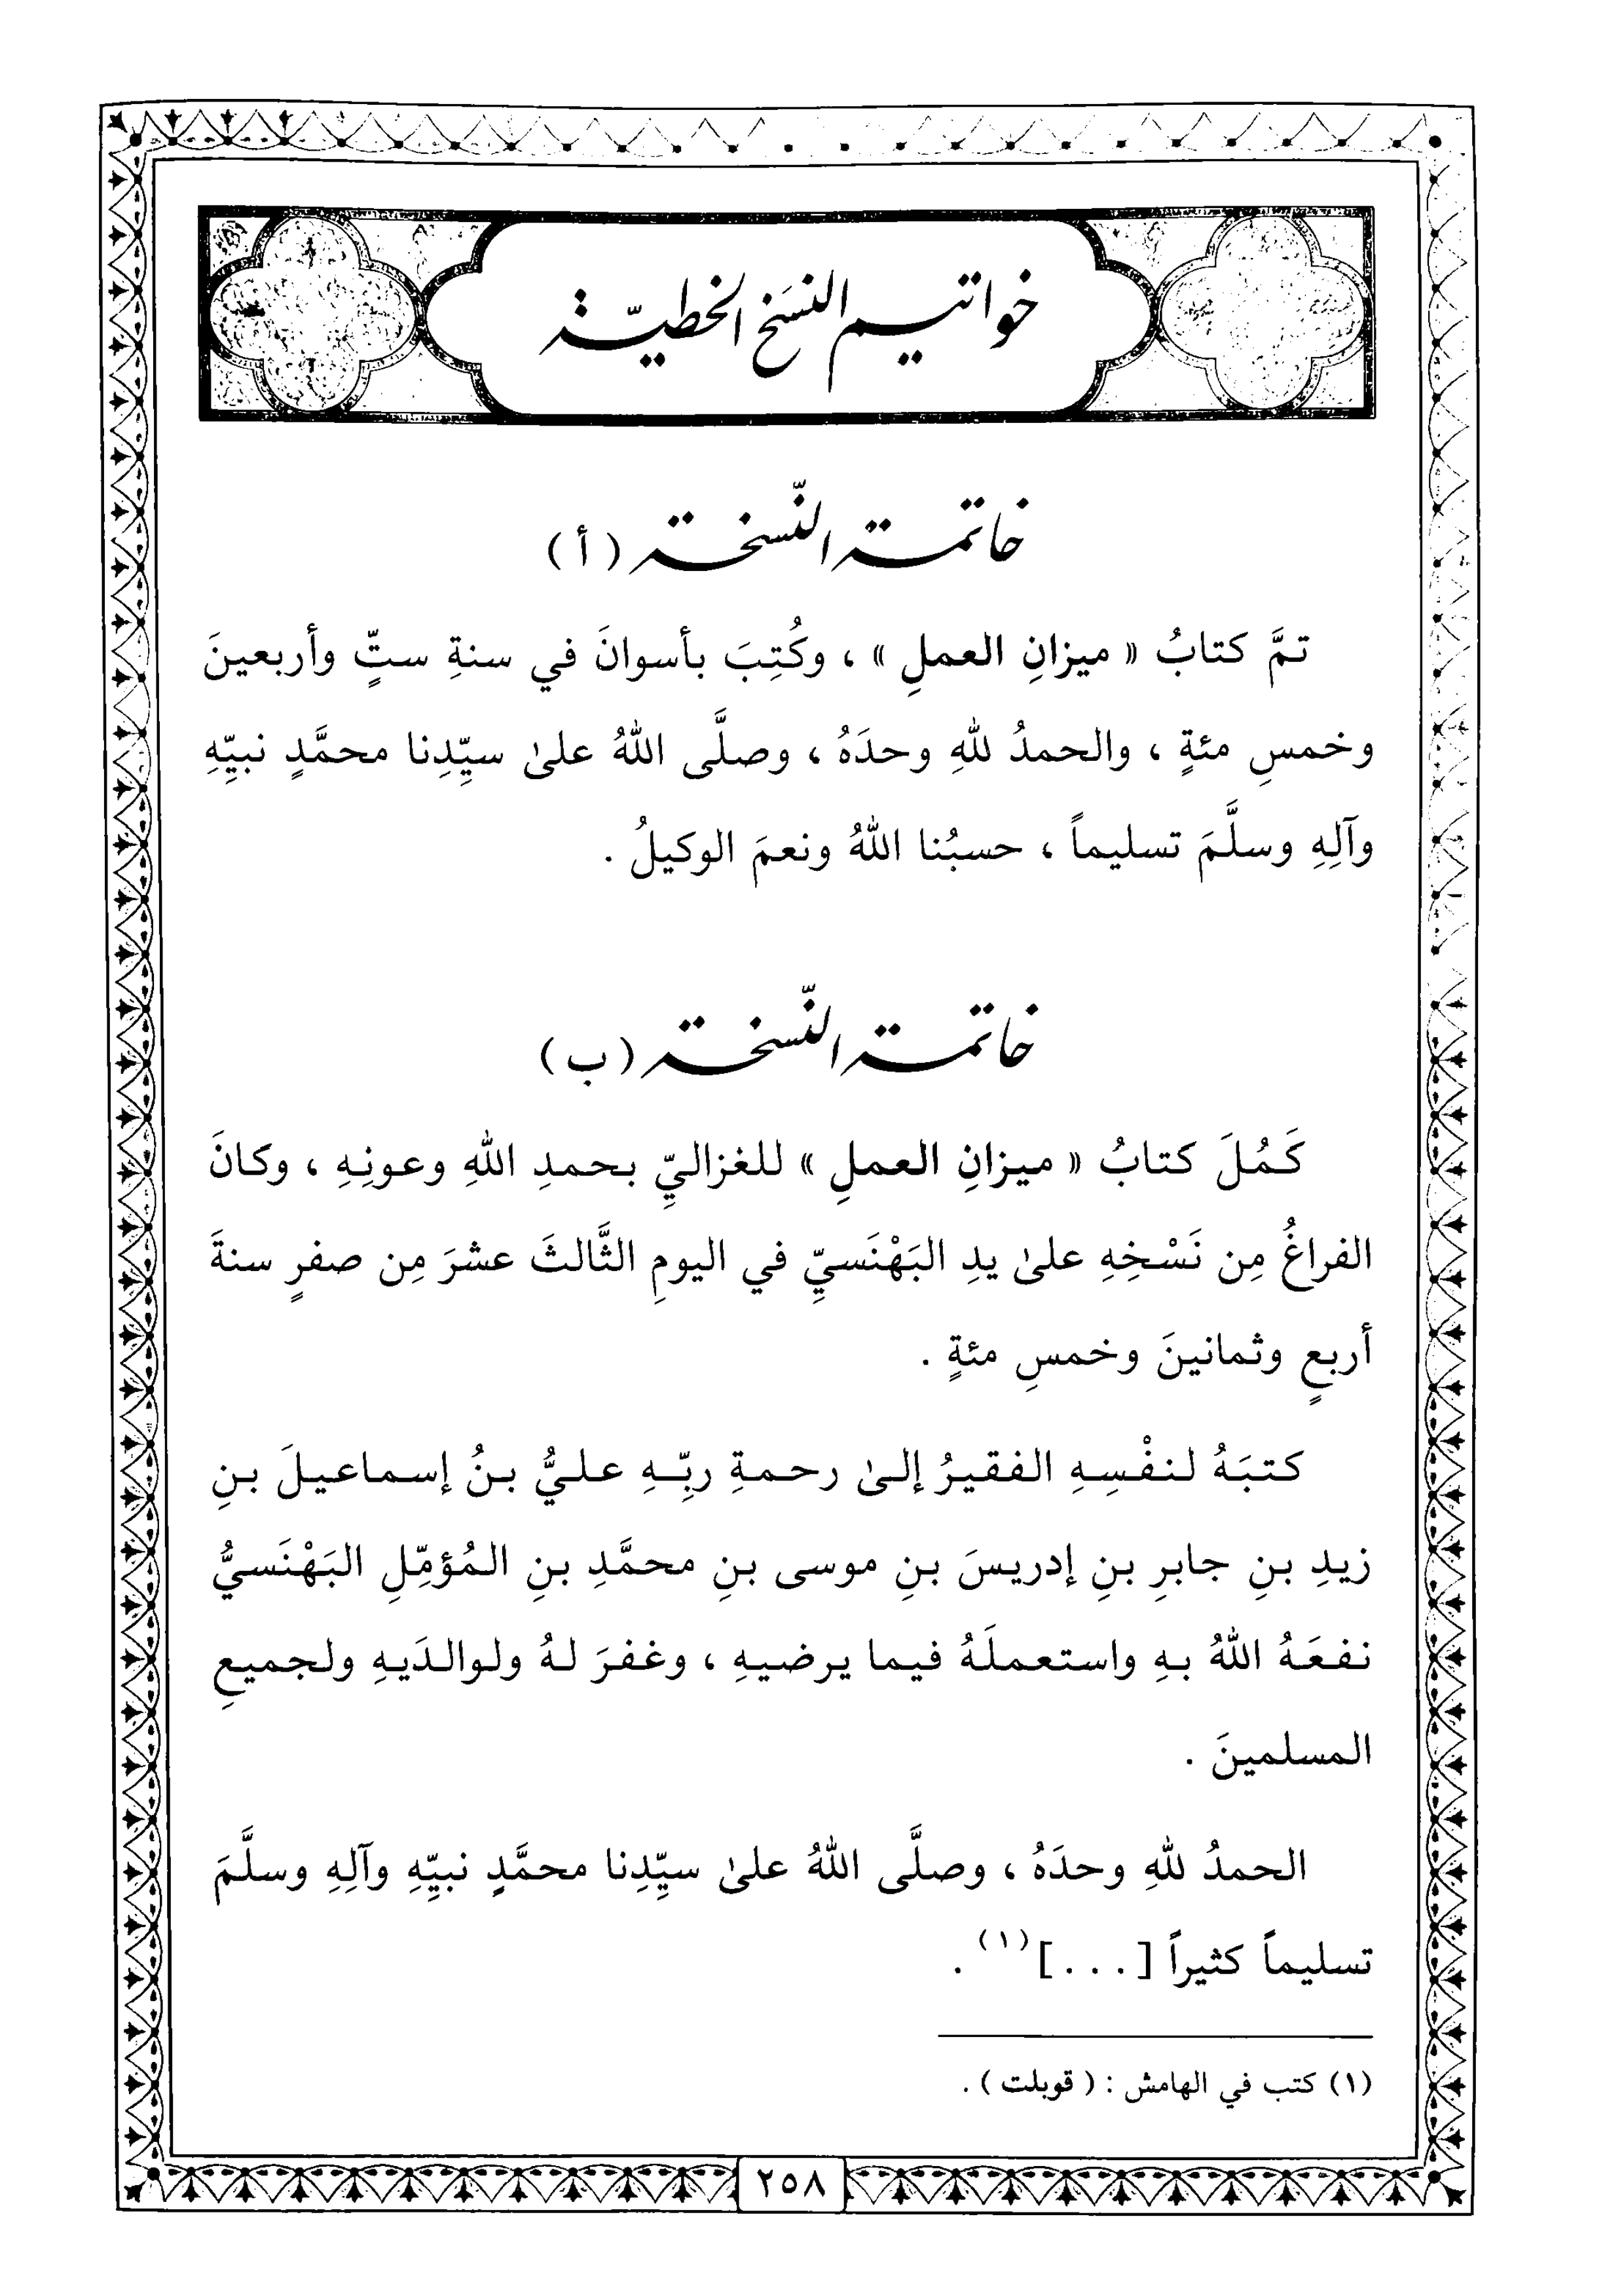 خواتيم النسَخ الخطيّة
خاتمة النّسخة (أ)
تمَّ كتابُ « ميزانِ العملِ » ، وكُتِبَ بأسوانَ في سنةِ ستٍّ وأربعينَ
وخمسِ مئةٍ ، والحمدُ للهِ وحدَهُ ، وصلَّى اللهُ علىٰ سيِّدِنا محمَّدٍ نبيِّهِ
وآلِهِ وسلَّمَ تسليماً ، حسبُنا اللهُ ونعمَ الوكيلُ .
خاتمة النّسخة (ب)
كَمُلَ كتابُ « ميزانِ العملِ » للغزاليِّ بحمدِ اللهِ وعونِهِ ، وكانَ
الفراغُ مِن نَسْخِهِ علىٰ يدِ البَهْنَسيِّ في اليومِ الثَّالثَ عشرَ مِن صفرٍ سنةَ
أربعٍ وثمانينَ وخمسِ مئةٍ .
كتبَهُ لنفْسِهِ الفقيرُ إلىٰ رحمةِ ربِّهِ عليُّ بنُ إسماعيلَ بنِ
زيدِ بنِ جابرِ بنِ إدريسَ بنِ موسى بنِ محمَّدِ بنِ المُؤمِّلِ البَهْنَسيُّ
نفعَهُ اللهُ بهِ واستعملَهُ فيما يرضيهِ ، وغفرَ لهُ ولوالدَيهِ ولجميعِ
المسلمينَ .
الحمدُ للهِ وحدَهُ ، وصلَّى اللهُ علىٰ سيِّدِنا محمَّدٍ نبيِّهِ وآلِهِ وسلَّمَ
تسليماً كثيراً [...] (١) .
(١) كتب في الهامش : ( قوبلت ) .
٢٥٨